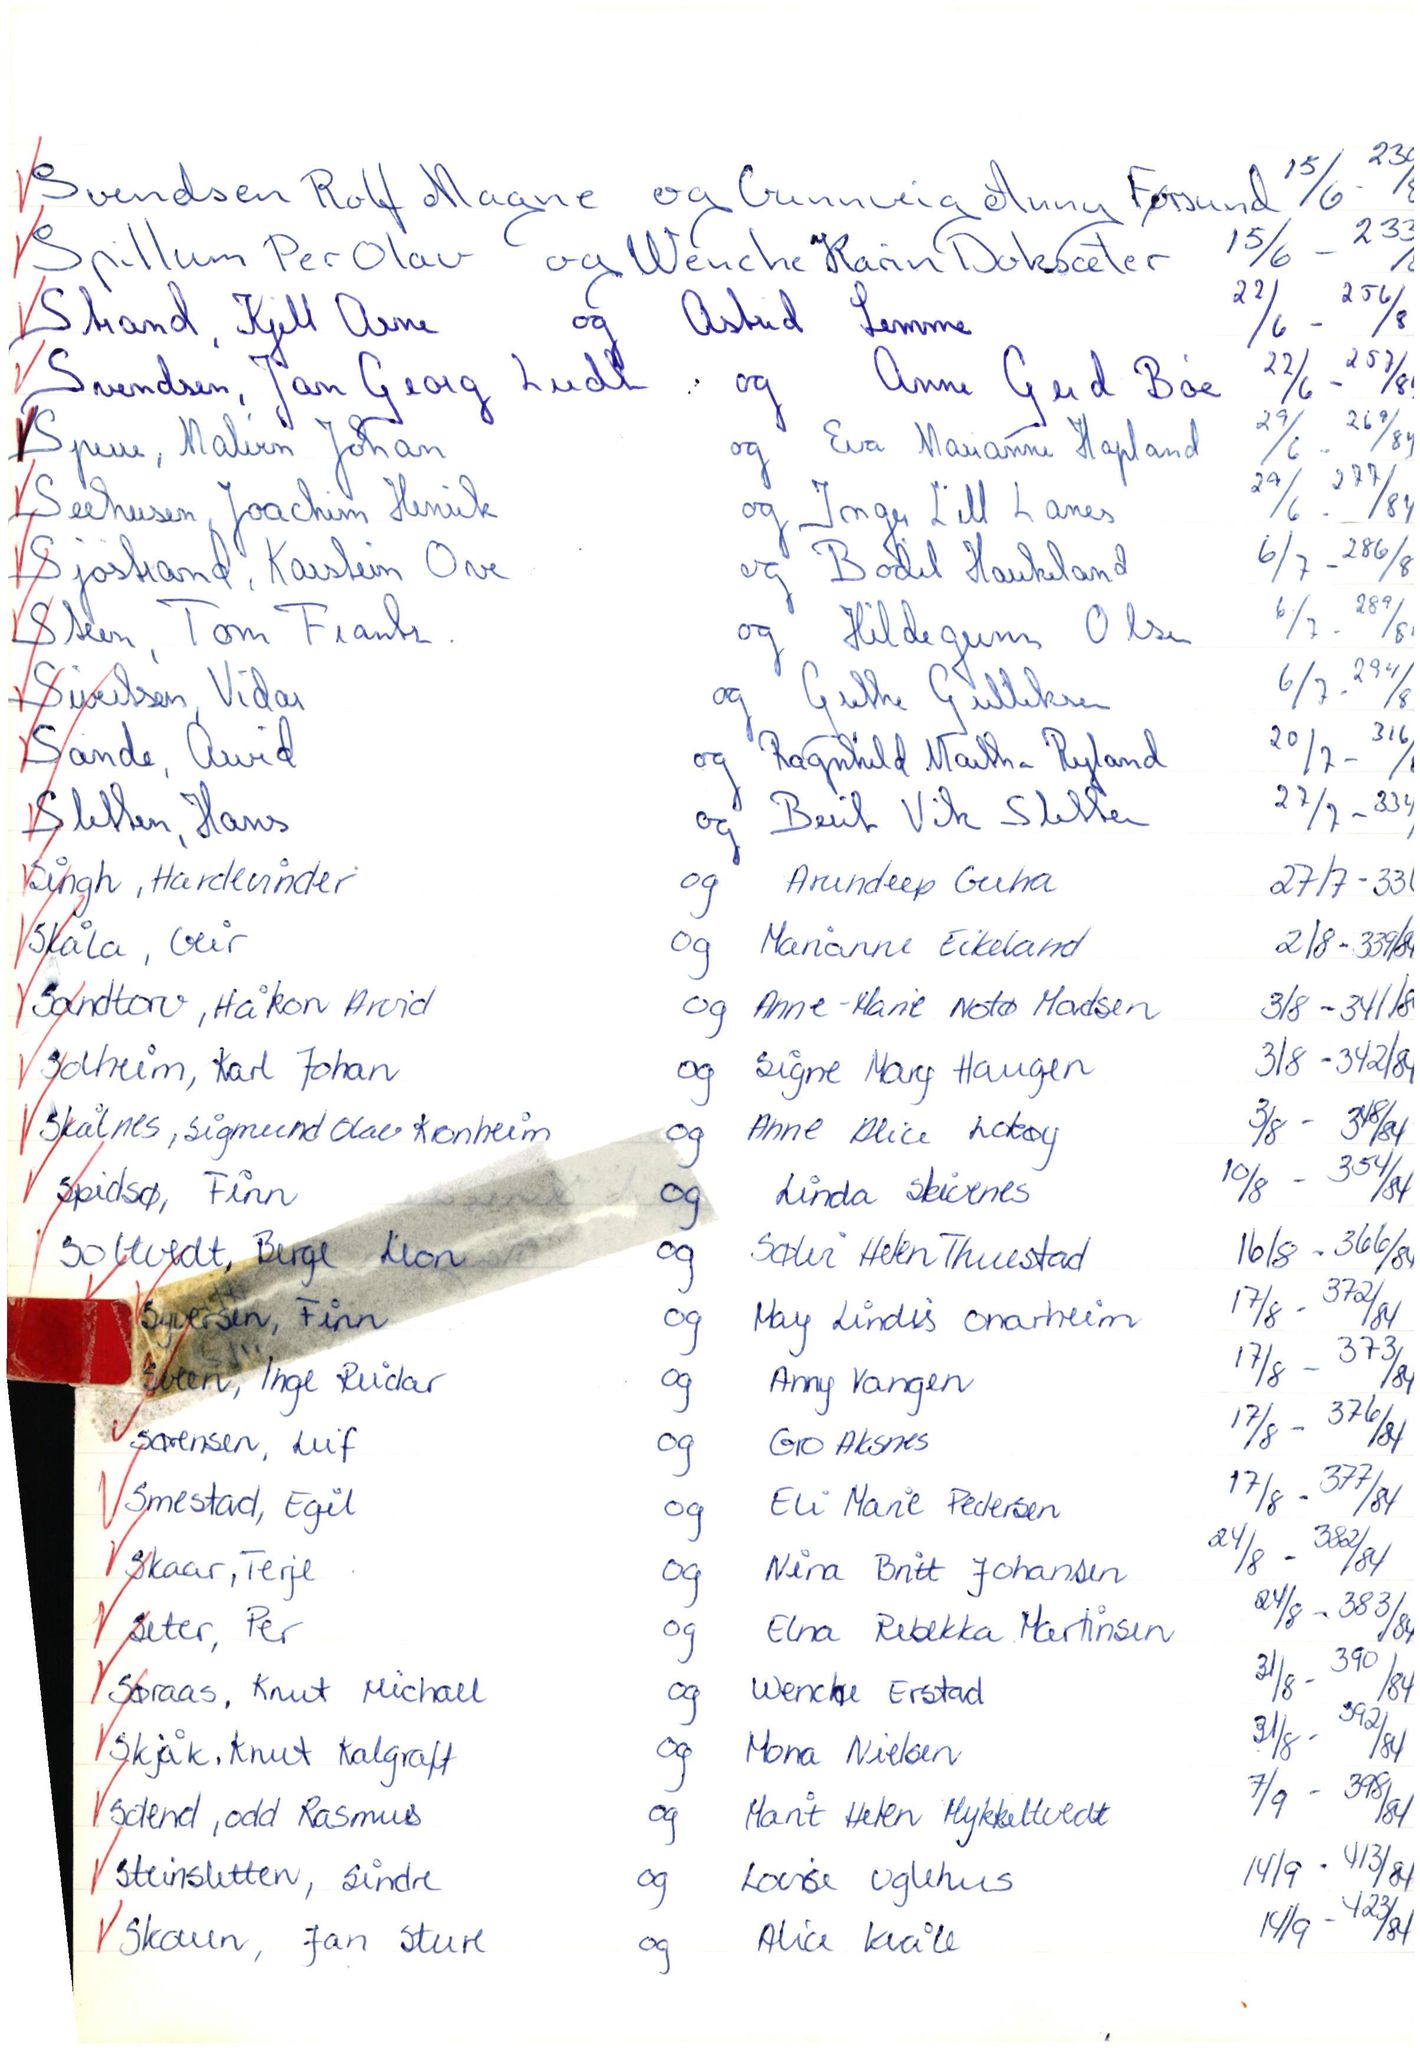 Svendsen Rolf Magne og Gunnveig Anny Førsund 15/6 - 230/8
Spillum Per Olav og Wenche Karin Doksæter 15/6 - 233/
Strand, Kjell Arne og Astrid Lemme 22/6 - 256/8
Svendsen, Jan Georg og Anne Gerd Bøe 22/6 - 257/8
Johan og Eva Marianne Hapland 29/6 - 269/84
Seehusen, Joachim Henrik og Inger Lill Lanes 29/6 - 277/84
Sjøstrand, Karstein Ove og Bodil Haukeland 6/7 - 286/8
Steen, Tom Frantz. og Hildegunn Olsen 6/7 - 289/8
Sivertsen, Vidar og Grethe Gulliksen 6/7 - 294/8
Sande, Arvid og Ragnhild Martha Ryland 20/7 - 316/
Sletten, Hans og Berit Vik Sletten 27/7 - 334/
Singh, Hardevinder og Arundeep Guha 27/7 - 33
Skåla, Geir og Marianne Eikeland 2/8 - 339/84
Sandtorv, Håkon Arvid og Anne-Marie Notø Madsen 3/8 - 341/8
Solheim, Karl Johan og Signe Mary Haugen 3/8 - 342/84
Skålnes, Sigmund Olav Kronheim og Anne Alice Lokøy 3/8 - 348/84
Spidsø, Finn og Linda Skivenes 10/8 - 354/84
Soltvedt, Berge Leon og Solvi Helen Thuestad 16/8 - 366/84
Syversen, Finn og May Lindis Onarheim 17/8 - 372/84
Sveen, Inge Reidar og Anny Vangen 17/8 - 373/84
Sørensen, Leif og Gro Aksnes 17/8 - 376/84
Smestad, Egil og Eli Marie Pedersen 17/8 - 377/84
Skaar, Terje og Nina Britt Johansen 24/8 - 382/84
Seter, Per og Elna Rebekka Martinsen 24/8 - 383/84
Søraas, Knut Michael og Wenche Erstad 31/8 - 390/84
Skjåk, Knut Kalgraff og Mona Nielsen 31/8 - 392/84
Solend, Odd Rasmus og Marit Helen Mykkeltvedt 7/9 - 398/84
Steinsletten, Sindre og Louise Uglehus 14/9 - 413/84
Skauen, Jan Sture og Alice Kvåle 14/9 - 423/84